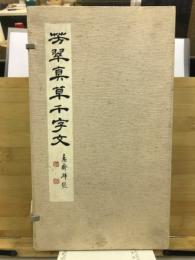 芳翠真草千字文